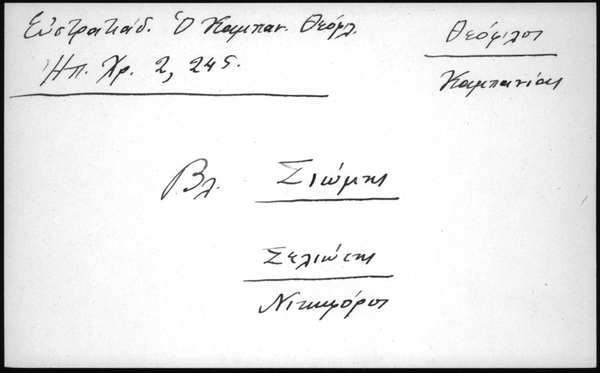 Εὐστρατιάδ. Ὁ Καμπαν. Θεόφιλ.
Ἠπ. Χρ. 2, 245.
Θεόφιλος
Καμπανίας
Βλ. Σιώμης
Σελιώτης
Νικηφόρος